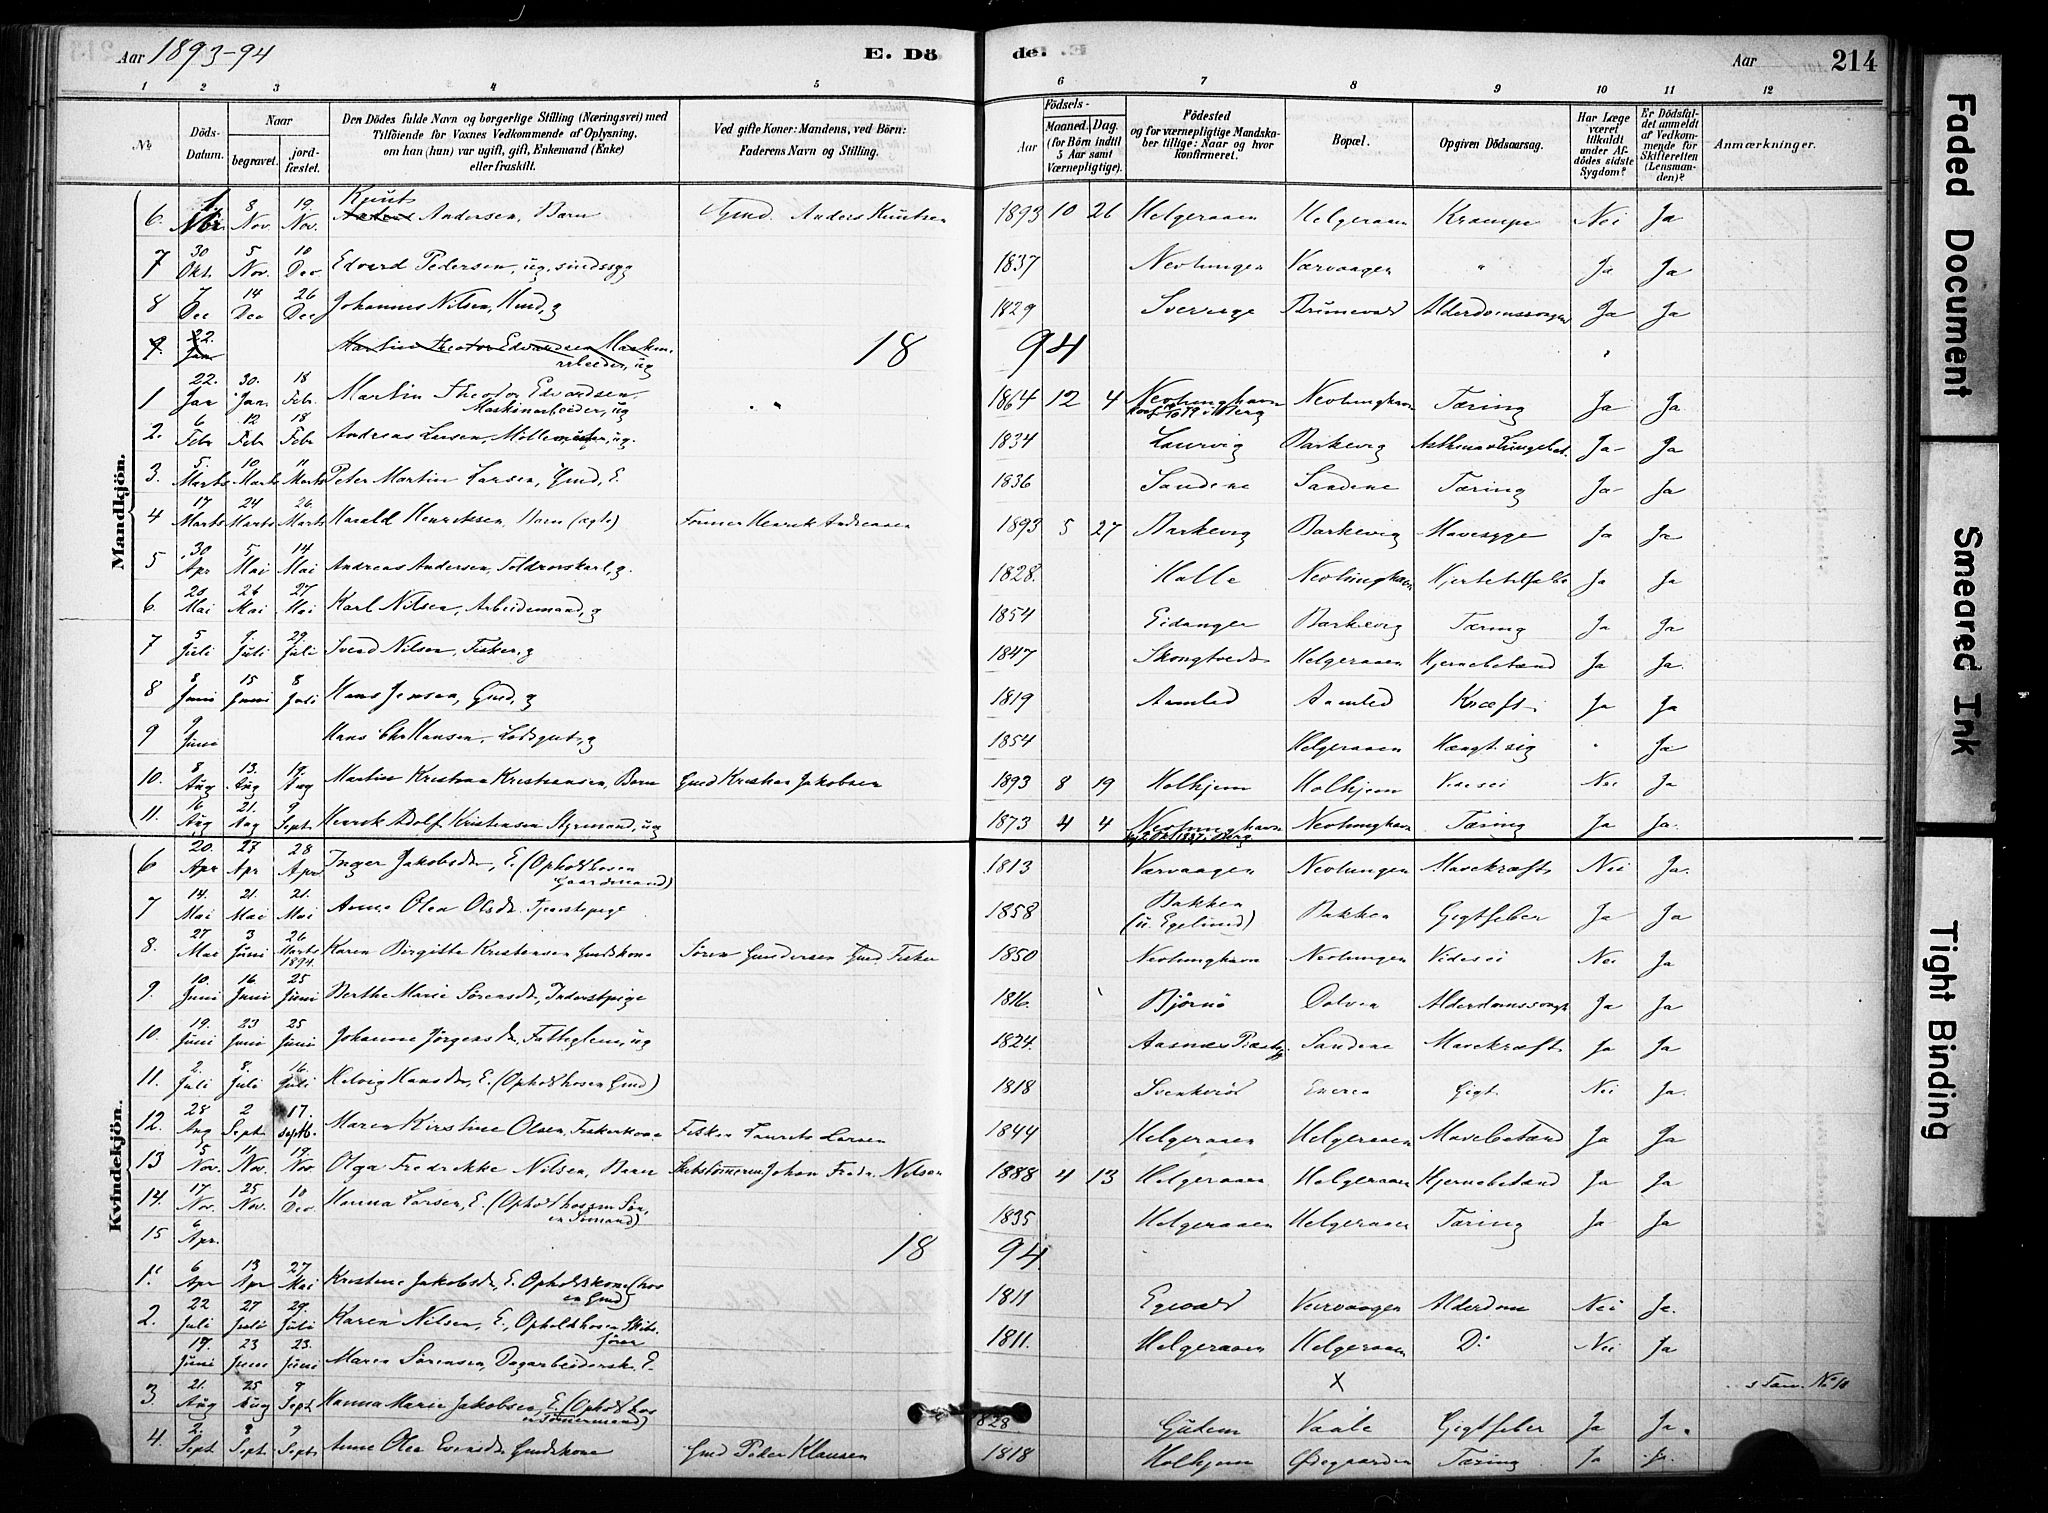 Aar 1893-94 E. Dö de. Aar 214
1 2 3 4 5 6 7 8 9 10 11 12
№ Döds-Datum. Naar begravet. jordfæstet. Den Dödes fulde Navn og borgerlige Stilling (Næringsvei) med Tilföiende for Voxnes Vedkommende af Oplysning, om han (hun) var ugift, gift, Enkemand (Enke) eller fraskilt. Ved gifte Koner: Mandens, ved Börn: Faderens Navn og Stilling. Födsels- Aar Maaned. Dag. (for Börn indtil 5 Aar samt Værnepligtige). Födested og for værnepligtige Mandskaber tillige: Naar og hvor konfirmeret. Bopæl. Opgiven Dödsaarsag. Har Læge været tilkaldt under Afdödes sidste Sygdom? Er Dödsfaldet anmeldt af Vedkommende for Skifteretten (Lensmanden)? Anmærkninger.
Mandkjön.
6. 1 Nov 8 Nov. 19. Nov. Knut Andersen, Barn Gmd. Anders Knutsen 1893 10 26 Helgeraaen Helgeraaen Krampe Nei Ja
7 30 Okt. 5 Nov. 10 Dec Edvard Pedersen, ug. sindssyg 1837 Nevlungen Værvaagen " Ja Ja
8 7 Dec 14 Dec 26 Dec Johannes Nilsen, Hmd, g 1829 Sverige Brunevald Alderdomssvaghed Ja Ja
9. 22. Jan Martin Theodor Edvardsen Maskinarbeider, ug
18 94
1 22. Jan 30. Jan. 18 Febr. Martin Theodor Edvardsen, Maskinarbeider, ug " 1864 12 4 Nevlunghavn Konf 1879 i Berg Nevlunghavn Tæring Ja Ja.
2. 6 Febr 12 Febr 18 Febr Andreas Larsen, Møllemester, ug. 1834 Laurvig Barkevig Asthma Ja Ja
3. 5. Marts 10. Marts 11 Marts Peter Martin Larsen, Gmd, E. 1836 Sandene Sandene Tæring Ja Ja
4 17 Marts 24 Marts 26. Marts Harald Henriksen, Barn (ægte) Tømmer Henrik Andreasen 1893 5 27 Barkevig Barkevig Mavesyge Ja Ja
5 30 Apr 5 Mai 14 Mai Andreas Andersen, Toldrorskarl, g. 1828. Halle Nevlunghavn Hjertetilfælde Ja Ja
6. 20 Mai 26 Mai 27 Mai Karl Nilsen, Arbeidsmand, g 1854 Eidanger Barkevig Tæring Ja Ja
7 5 Juli 9 Juli 29. Juli Svend Nilsen, Fisker, g 1847 Skongtvedt Helgeraaen Hjernebetænd Ja Ja.
8 8 Juni 15 Juni 8 Juli Hans Jensen, Gmd, g 1819 Aamled Aamled Kræft Ja Ja
9 9 Juni Hans Chr Hansen, Lodsgut, g 1854 Helgeraaen Hængt sig " Ja
10. 8 Aug 13. Aug 19. Aug Martin Kristian Kristiansen, Barn Gmd Kristian Jakobsen 1893 8 19 Holhjem Holhjem Vides ei Nei Ja
11. 16. Aug 21. Aug 9 Sept. Henrik Adolf Kristensen Styrmand, ug 1873 4 4 Nevlunghavn Nevlunghavn Tæring Ja Ja.
Kvindekjön.
6 20. Apr 27 Apr 28 Apr Inger Jakobsdr, E. (Ophold hosen Gaardmand) 1813 Værvaagen Nevlungen Mavekræft Nei Ja.
7 14. Mai 21. Mai 21. Mai Anne Olea Olsdr. Tjenestepige 1858 Bakken (u. Egelund) Bakken Gigtfeber Ja Ja
8. 27 Mai 3 Juni 26 Marts 1894. Karen Birgitte Kristensen Gmdskone Sören Gundersen Gmd. Fisker 1850 Nevlunghavn Nevlungen Vides ei Nei Ja
9. 10. Juni 16. Juni 25 Juni Berthe Marie Sørensdr, Inderstpige 1816. Bjørnø Dolven Alderdomssvagh Ja Ja
10. 19. Juni 23 Juni 25 Juni Johanne Jørgensdr, Fattiglem, ug 1824. Aasnæs Sandene Mavekræft Ja Ja
11. 2. Juli 8. Juli 16. Juli Helvig Hansdr, E. (Ophold hosen Gmd) 1818 Svenkerød Eneren Gigt. Nei Ja.
12. 28 Aug 2 Sept. 17. Septb. Maren Kirstine Olsen, Fiskerkone Fisker Laurits Larsen 1844 Helgeraaen Helgeraaen Mavebetænd Ja Ja
13 5 Nov. 11. Nov. 19. Nov Olga Fredrikke Nilsen, Barn Skibstömmerm Johan Fredr. Nilsen 1888 4 13 Helgeraaen Helgeraaen Hjernebetænd Ja Ja
14. 17 Nov. 25 Nov. 10 Dec Hanna Larsen, E. (Ophold hos em Søn, en Sømand) 1835 Helgeraaen Helgeraaen Tæring Ja Ja
15 6 Apr.
18 94.
1. 6 Apr 13 Apr 27 Mai Kristine Jakobsdr, E. Opholdskone (hos en Gmd) 1811 Egevald Værvaagen Alderdom Nei Ja.
2. 22 Juli 27 Juli 29. Juli Karen Nilsen, E., Ophold hosen Skibsfører 1811. Helgeraaen Helgeraaen Do Nei Ja
19. Juni 23 Juni 23. Juni Maren Sörensen, Dagarbeidersk, E. X s Tav. No 10
3. 21. Aug 25 Aug 9 Sept Hanna Marie Jakobsen, E. (Ophold hos en Tømmermand) 1828 Gudem Vaale Gigtfeber Ja Ja.
4. 2. Sept. 8 Sept. 9 Sept. Anne Olea Evensdr Gmdskone Gmd Peter Klausen 1818 Holhjem Ødegaarden Tæring Ja Ja.
Faded Document
Smeared Ink
Tight Binding